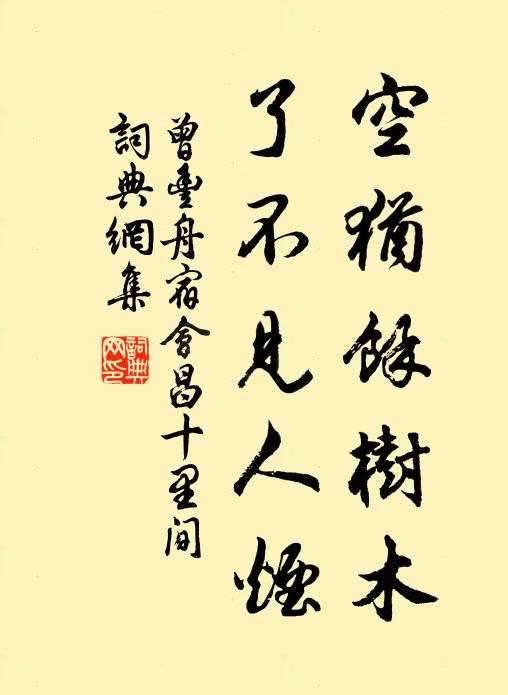 空猶餘樹木
了不見人煙
曾豐舟宿會昌十里間
詞典網集
詞典網印